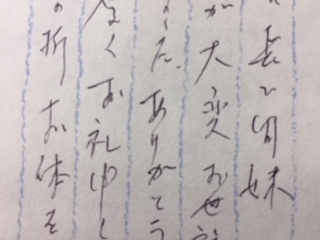 長い間妹
が大変お世
した。ありがとう
なくお礼申し
の折お体を